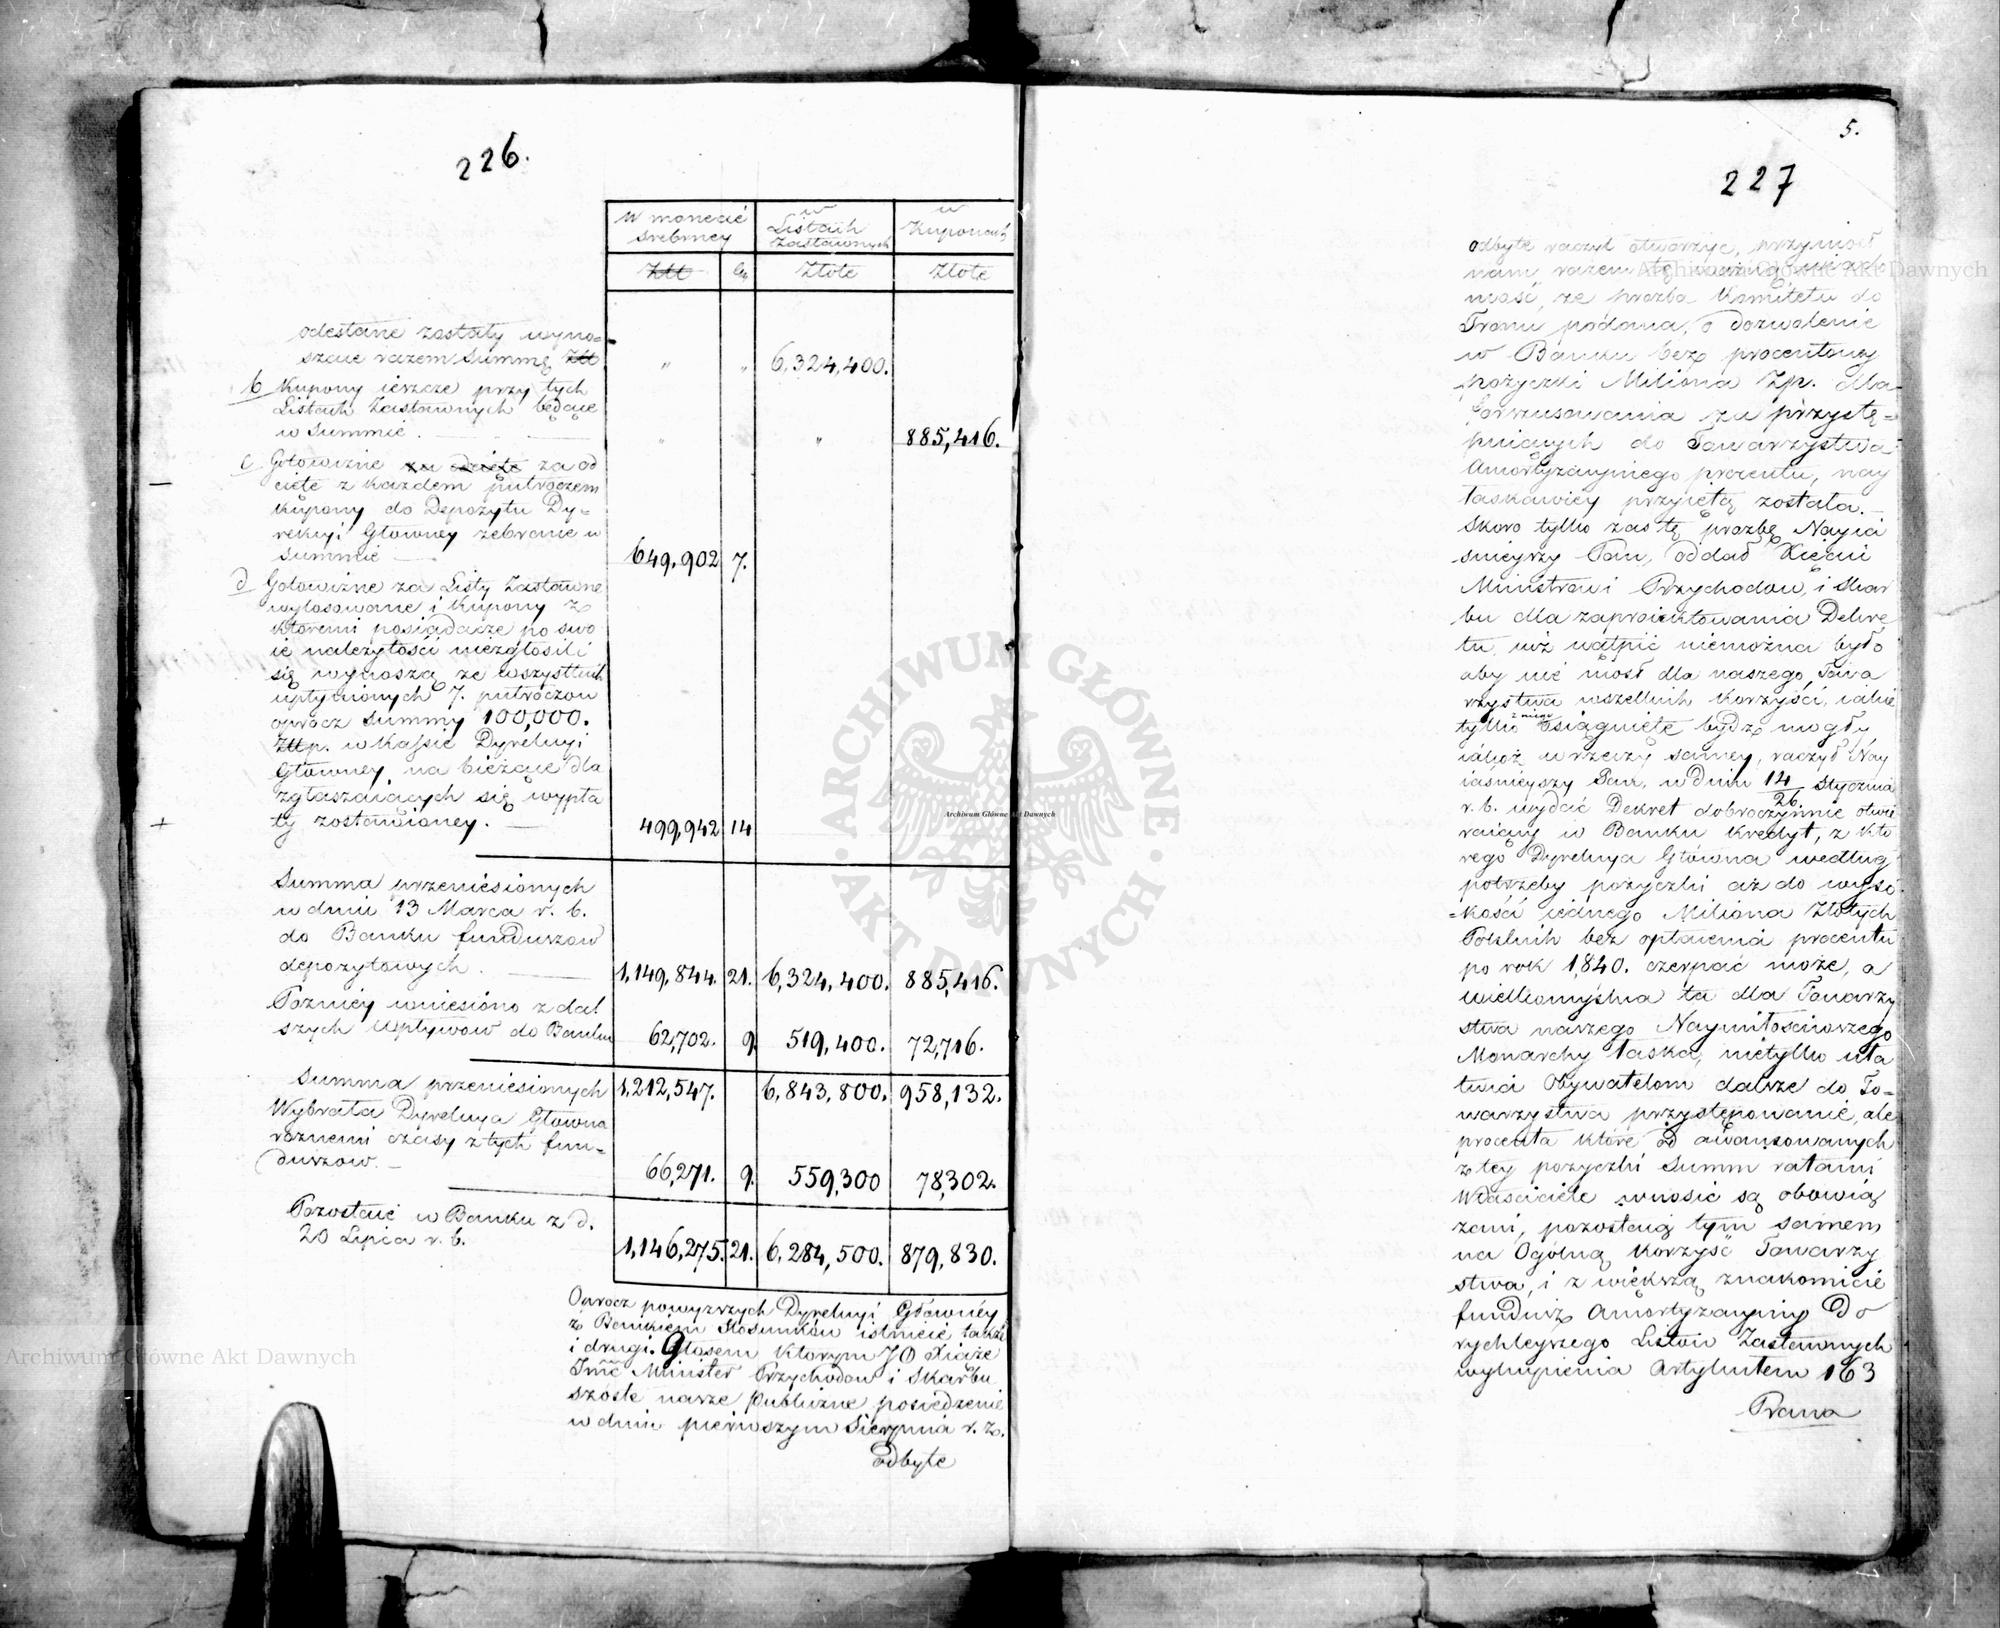 226.
W monecie srebrney
w Listach Zastawnych
w Kuponach
Złł
Gr
Złote
Złote
odesłane zostały wyno=
szące razem Summę Złł " " 6,324,400.
b Kupony ieszcze przy tych
Listach Zastawnych będące
w Summie . " " 885,416.
c Gotowiznę za odcięte za od
cięte z każdem półroczem
Kupony do Depozytu Dy=
rekcyi Głowney zebrane w
Summie — 649,902 7.
d Gotowiznę za Listy Zastawne
wylosowane i Kupony z
któremi posiadacze po swo
ie należytości niezgłosili
się wynoszą ze wszystkich
upłynionych 7. półroczow
oprócz Summy 100,000.
Złłp. w Kassie Dyrekcyi
Głowney, na bieżące dla
zgłaszaiących się wypła
ty zostawioney. — 499,942 14
Summa przeniesionych
w dniu 13 Marca r. b.
do Banku funduszow
depozytowych . — 1,149,844. 21. 6,324,400. 885,416.
Pozniéy wniesiono z dal
szych wpływow do Banku 62,702. 9. 519,400. 72,716.
Summa przeniesionych 1,212,547. 6,843,800. 958,132.
Wybrała Dyrekcya Głowna
roznemi czasy z tych fun=
duszow. — 66,271. 9. 559,300 78,302.
Pozostaie w Banku z d.
20 Lipca r. b. 1,146,275. 21. 6,284,500. 879,830.
Oprocz powyzszych Dyrekcyi Głównéy
z Bankiem stosunków istnieie także
i drugi. Głosem ktorym JO Xiąże
Jmć Minister Przychodow i Skarbu
szoste nasze Publiczne posiedzenie
w dniu pierwszym Sierpnia r. z.
odbyte
5.
227
odbyte raczył otworzyć, przyniosł
nam razem tę ważną wiado
mość, że prozba Komitetu do
Tronu podana, o dozwolenie
w Banku bez procentowey
pożyczki Miliona Zp. dla
forszusowania za przystę=
puiących do Towarzystwa
Amortyzacyinego procentu, nay
łaskawiey przyiętą została. —
Skoro tylko zaś tę prozbę Nayia
śnieyszy Pan, oddał Xięciu
Ministrowi Przychodow, i Skar
bu dla zaproiektowania Dekre
tu, iuż wątpić niemożna było
aby nie niosł dla naszego Towa
rzystwa wszelkich korzyści, iakie
tylko z niego osiągnięte bydź mogły
iakoż w rzeczy samey, raczył Nay
iaśnieyszy Pan, w dniu 14/26 Stycznia
r. b. wydać Dekret dobroczynnie otwie
raiący w Banku kredyt, z któ
rego Dyrekcya Główna według
potrzeby pożyczki aż do wyso
=kości iednego Miliona Złotych
Polskich bez opłacenia procentu
po rok 1,840. czerpać może, a
wielkomyślna ta dla Towarzy
stwa naszego Naymiłościwszego
Monarchy łaska, nietylko uła
twia Obywatelom dalsze do To=
warzystwa przystępowanie, ale
procenta które od awansowanych
z tey pożyczki Summ ratami
Właściciele wnosić są obowią
zani, pozostaią tym samem
na Ogólną korzyść Towarzy
stwa, i z większą znakomicie
fundusz Amortyzacyiny do
rychleyszego Listow Zastawnych
wykupienia Artykułem 163
Prawa
Archiwum Główne Akt Dawnych
Archiwum Główne Akt Dawnych
Archiwum Główne Akt Dawnych
ARCHIWUM GŁÓWNE · AKT DAWNYCH ·